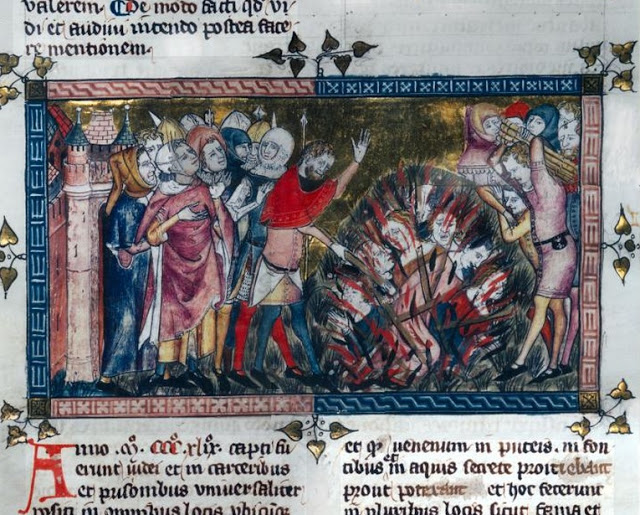 valerem. De modo facti qd vi
di et audiui intendo postea face
re mentionem.
Anno mº. cccº. xlixº. capti fu
erunt iudei et in carceribus
et prisonibus vniuersaliter
positi in omnibus locis
et q uenenum in puteis. in fon
tibus et in aquis secrete proiciebant
prout poterant et hoc fecerunt
in pluribus locis sicut fama et